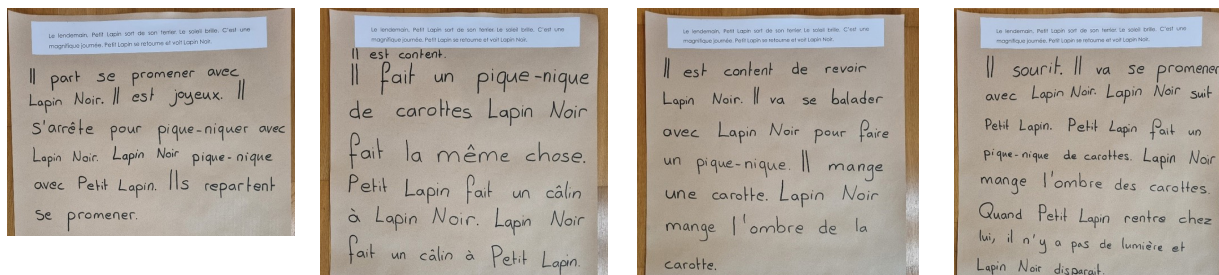 Le lendemain, Petit Lapin sort de son terrier. Le soleil brille. C'est une
magnifique journée. Petit Lapin se retourne et voit Lapin Noir.
Il part se promener avec
Lapin Noir. Il est joyeux. Il
s'arrête pour pique-niquer avec
Lapin Noir. Lapin Noir pique-nique
avec Petit Lapin. Ils repartent
se promener.
Le lendemain, Petit Lapin sort de son terrier. Le soleil brille. C'est une
magnifique journée. Petit Lapin se retourne et voit Lapin Noir.
Il est content.
Il fait un pique-nique
de carottes. Lapin Noir
fait la même chose.
Petit Lapin fait un câlin
à Lapin Noir. Lapin Noir
fait un câlin à Petit Lapin.
Le lendemain, Petit Lapin sort de son terrier. Le soleil brille. C'est une
magnifique journée. Petit Lapin se retourne et voit Lapin Noir.
Il est content de revoir
Lapin Noir. Il va se balader
avec Lapin Noir pour faire
un pique-nique. Il mange
une carotte. Lapin Noir
mange l'ombre de la
carotte.
Le lendemain, Petit Lapin sort de son terrier. Le soleil brille. C'est une
magnifique journée. Petit Lapin se retourne et voit Lapin Noir.
Il sourit. Il va se promener
avec Lapin Noir. Lapin Noir suit
Petit Lapin. Petit Lapin fait un
pique-nique de carottes. Lapin Noir
mange l'ombre des carottes.
Quand Petit Lapin rentre chez
lui, il n'y a pas de lumière et
Lapin Noir disparait.